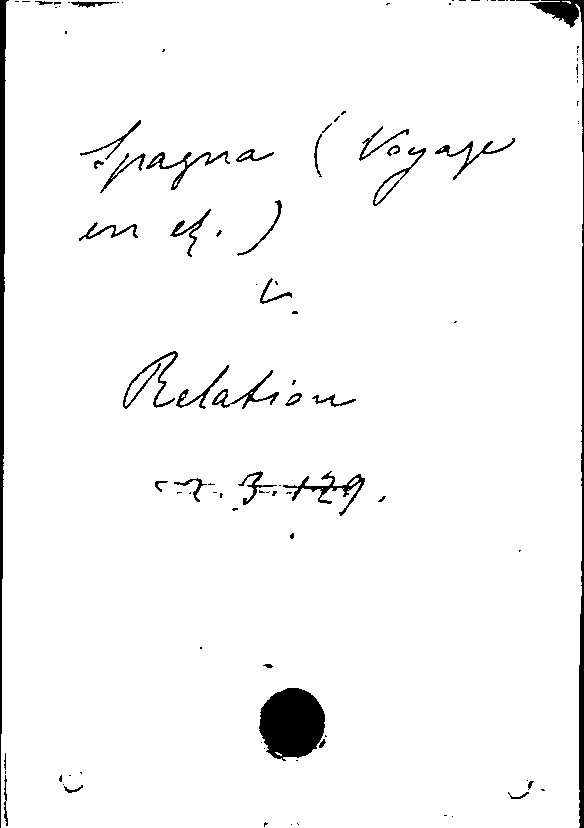 Spagna (Voyage
en et.)
v.
Relation
r. 3. 129.